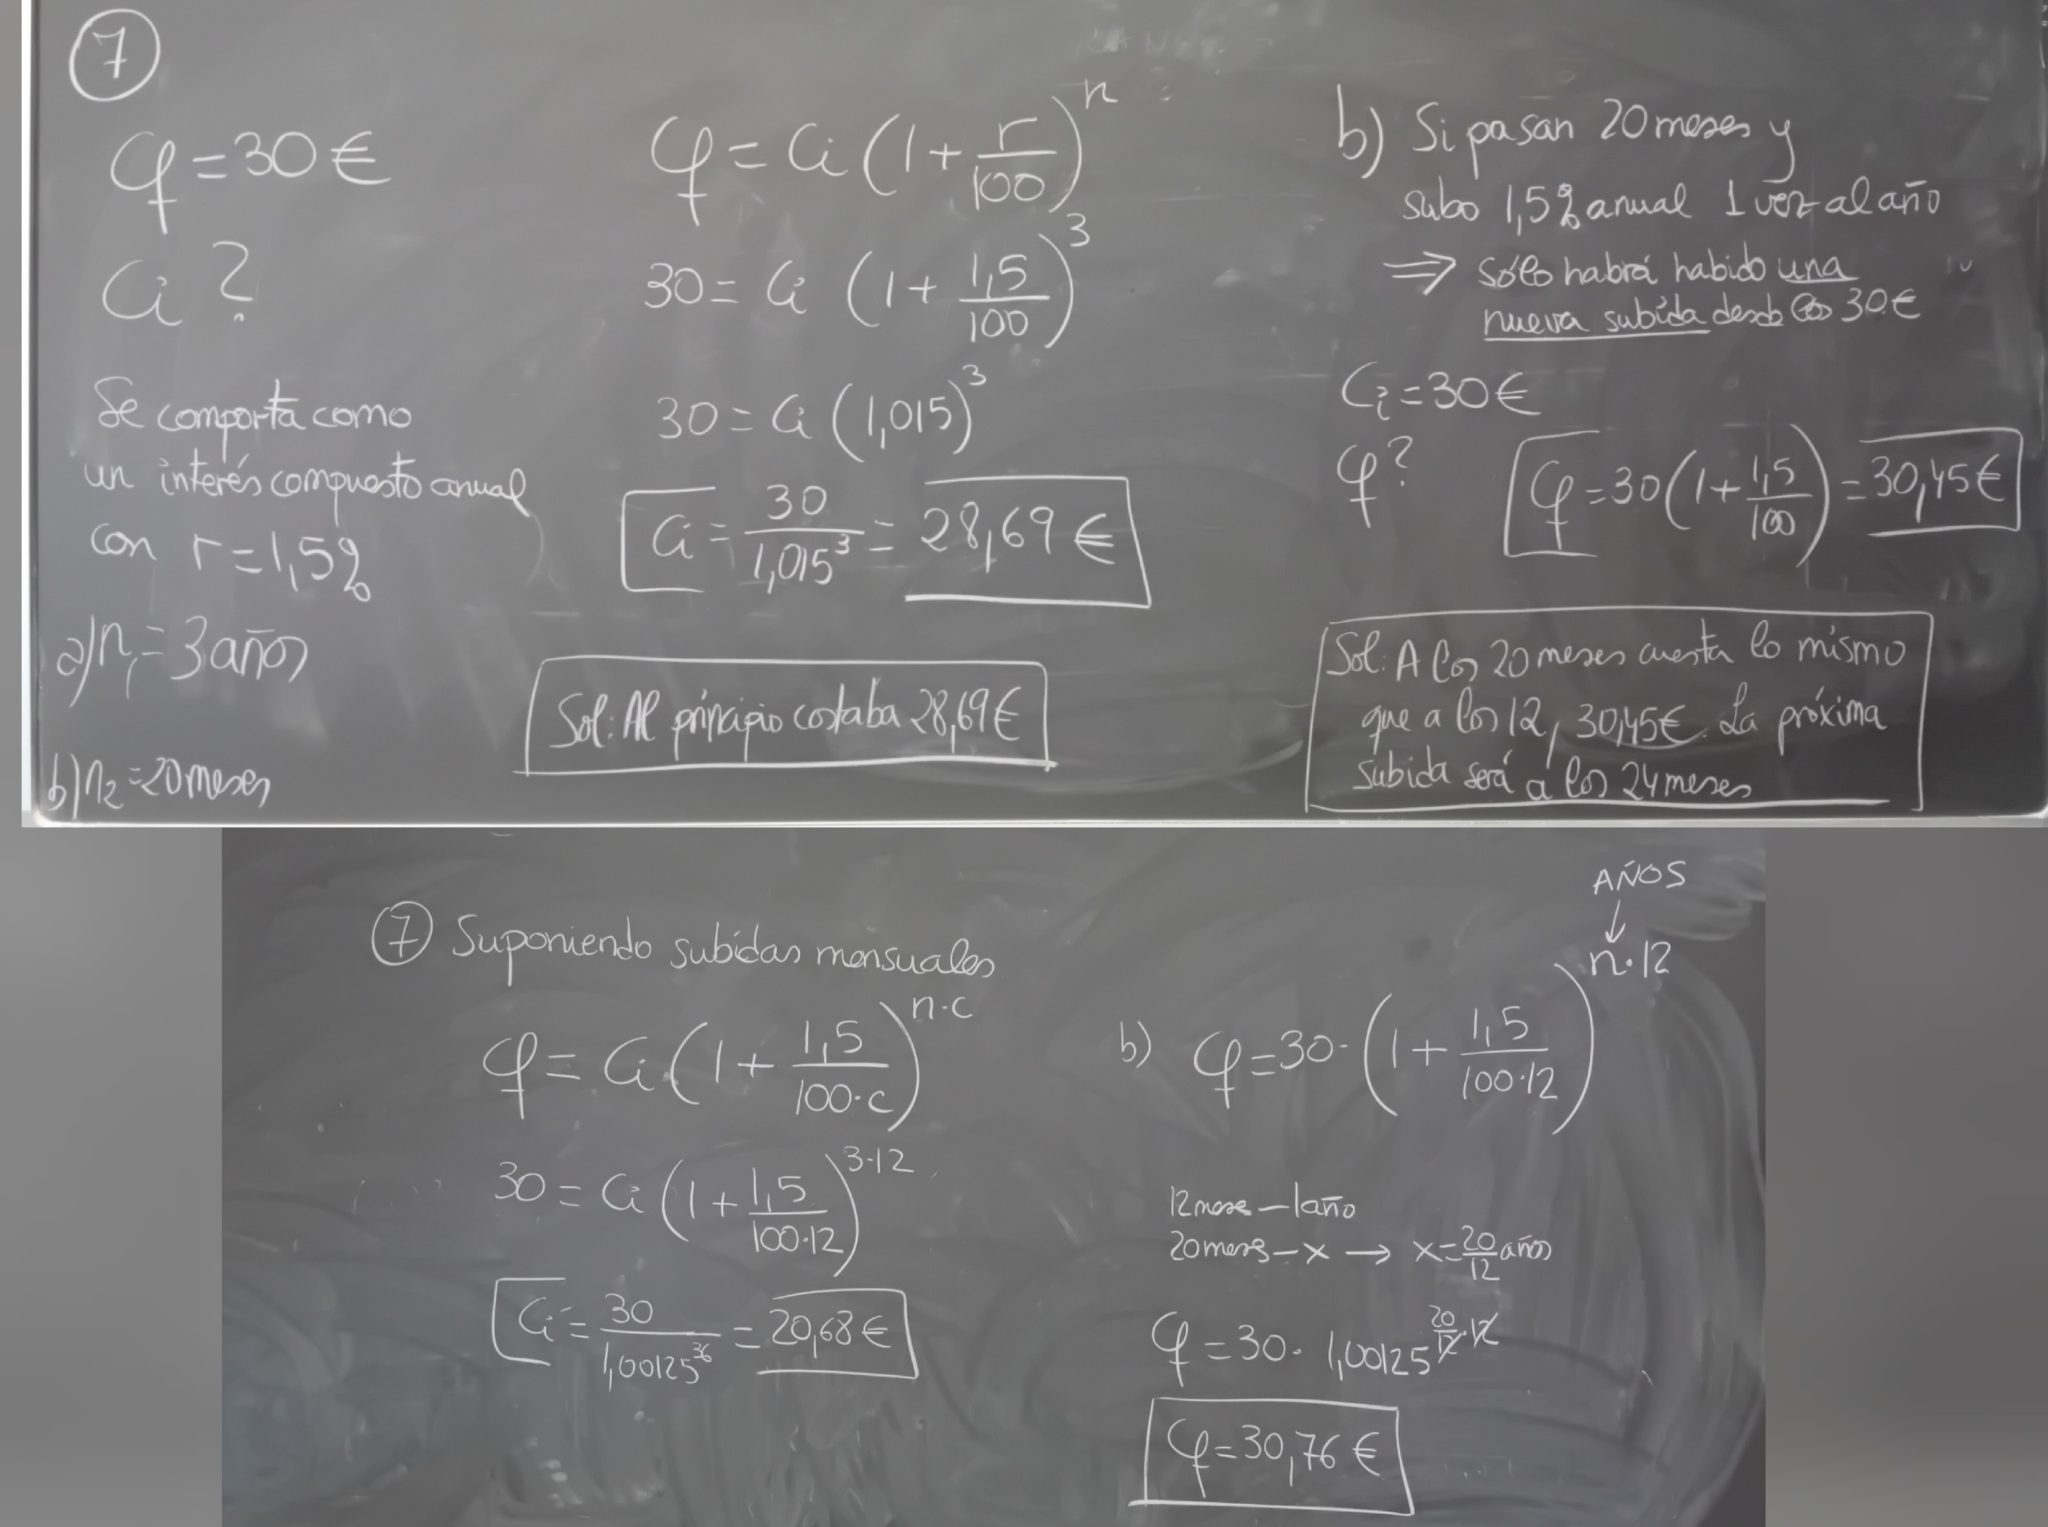 7
Cf = 30€
Ci ?
Se comporta como
un interés compuesto anual
con r = 1,5%
a) n₁ = 3 años
b) n₂ = 20 meses
Cf = Ci (1 + r/100)^n
30 = Ci (1 + 1,5/100)^3
30 = Ci (1,015)^3
Ci = 30/1,015^3 = 28,69 €
Sol: Al principio costaba 28,69€
b) Si pasan 20 meses y
subo 1,5% anual 1 vez al año
⇒ sólo habrá habido una
nueva subida desde los 30€
Ci = 30€
Cf ?
Cf = 30 (1 + 1,5/100) = 30,45€
Sol: A los 20 meses cuesta lo mismo
que a los 12, 30,45€. La próxima
subida será a los 24 meses
7 Suponiendo subidas mensuales
Cf = Ci (1 + 1,5/100·c)^n·c
30 = Ci (1 + 1,5/100·12)^3·12
Ci = 30/1,00125^36 = 20,68 €
AÑOS
↓
b) Cf = 30· (1 + 1,5/100·12)^n·12
12 mese – 1 año
20 meses – x → x = 20/12 años
Cf = 30 · 1,00125^20/12·12
Cf = 30,76 €